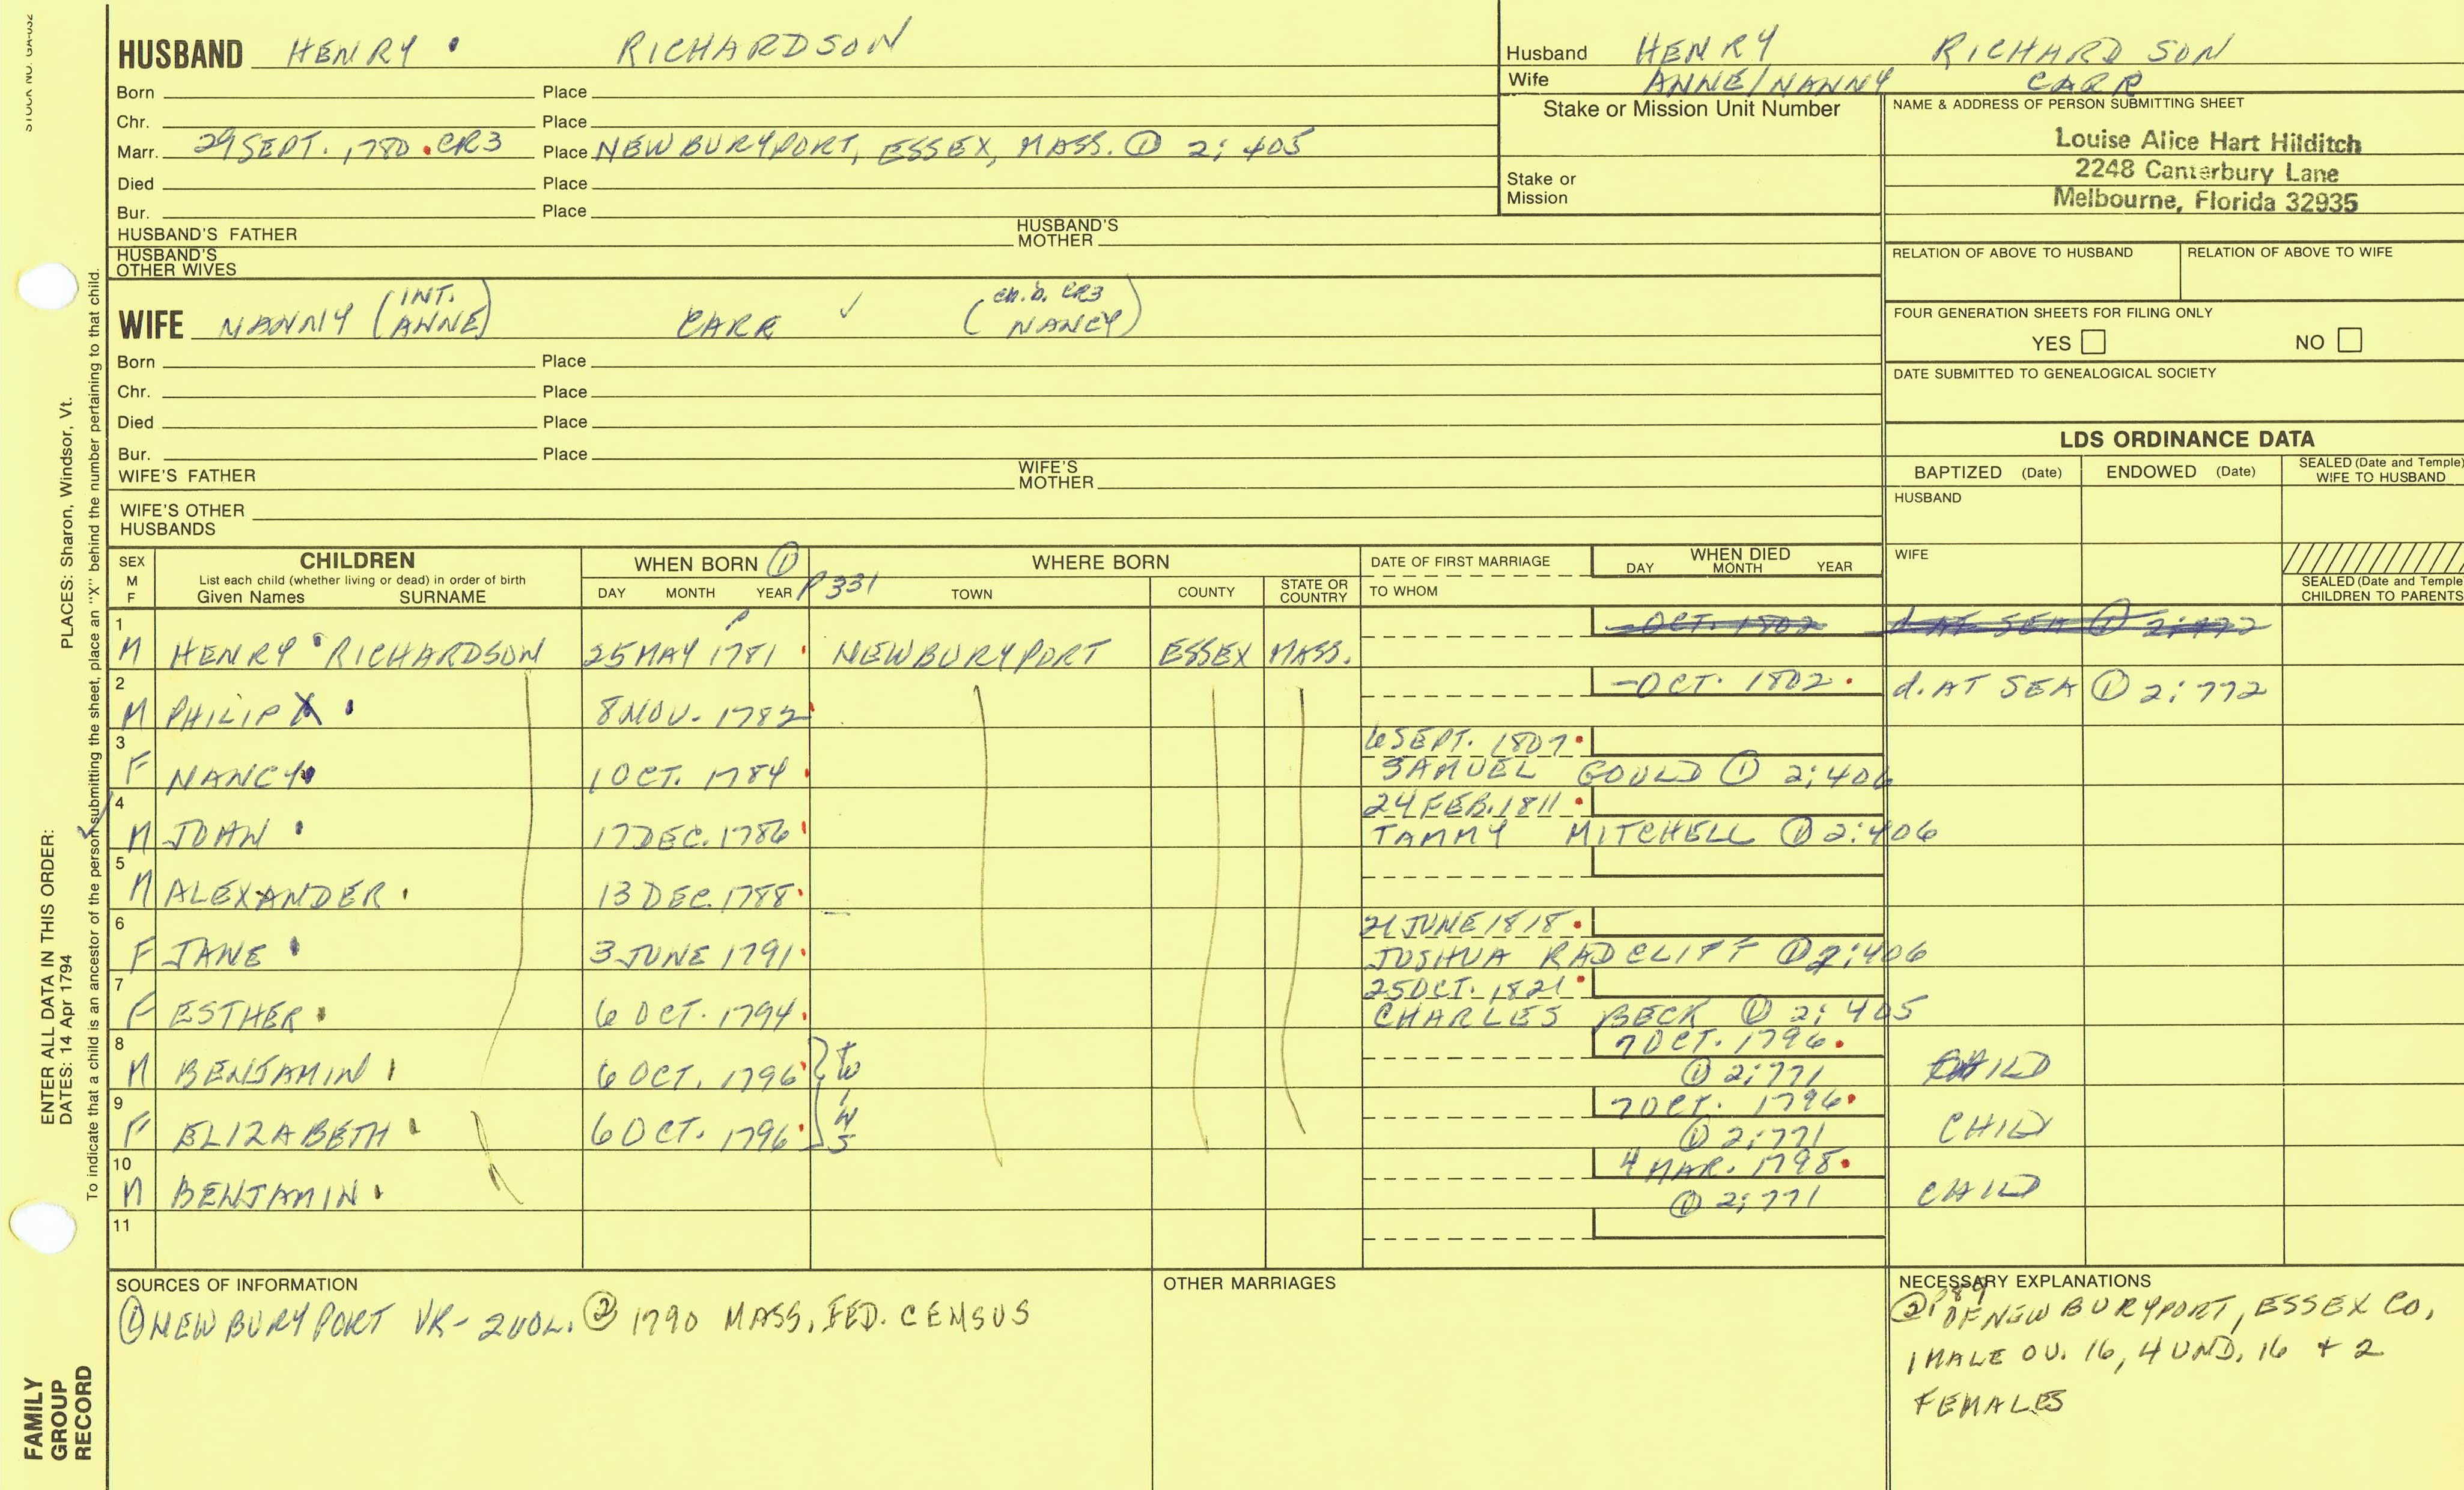 STOCK NO. GA-032
HUSBAND HENRY RICHARDSON
Born Place
Chr. Place
Marr. 29 SEPT. 1780 . CR3 Place NEWBURYPORT, ESSEX, MASS. ① 2:405
Died Place
Bur. Place
HUSBAND'S FATHER HUSBAND'S MOTHER
HUSBAND'S OTHER WIVES
Husband HENRY RICHARDSON
Wife ANNE/NANNY CARR
Stake or Mission Unit Number
Stake or Mission
NAME & ADDRESS OF PERSON SUBMITTING SHEET
Louise Alice Hart Hilditch
2248 Canterbury Lane
Melbourne, Florida 32935
RELATION OF ABOVE TO HUSBAND RELATION OF ABOVE TO WIFE
FOUR GENERATION SHEETS FOR FILING ONLY
YES NO
DATE SUBMITTED TO GENEALOGICAL SOCIETY
WIFE NANNY (INT. ANNE) CARR ✓ (ch. b. CR3 NANCY)
Born Place
Chr. Place
Died Place
Bur. Place
WIFE'S FATHER WIFE'S MOTHER
WIFE'S OTHER HUSBANDS
LDS ORDINANCE DATA
BAPTIZED (Date) ENDOWED (Date) SEALED (Date and Temple) WIFE TO HUSBAND
HUSBAND
WIFE
SEALED (Date and Temple) CHILDREN TO PARENTS
SEX M F
CHILDREN
List each child (whether living or dead) in order of birth
Given Names SURNAME
WHEN BORN ① P 331
DAY MONTH YEAR
WHERE BORN
TOWN COUNTY STATE OR COUNTRY
DATE OF FIRST MARRIAGE
TO WHOM
WHEN DIED
DAY MONTH YEAR
1 M HENRY RICHARDSON 25 MAY 1781 NEWBURYPORT ESSEX MASS. - OCT. 1802 d. AT SEA ① 2:772
2 M PHILIP X 8 NOV. 1782 - OCT. 1802. d. AT SEA ① 2:772
3 F NANCY 1 OCT. 1784 6 SEPT. 1807
SAMUEL GOULD ① 2:406
4 M JOHN 17 DEC. 1786 24 FEB. 1811
TAMMY MITCHELL ① 2:406
5 M ALEXANDER 13 DEC. 1788
6 F JANE 3 JUNE 1791 21 JUNE 1818
JOSHUA RADCLIFF ① 2:406
7 F ESTHER 6 OCT. 1794 25 OCT. 1821
CHARLES BECK ① 2:405
8 M BENJAMIN 6 OCT. 1796 twins 7 OCT. 1796 ① 2:771 CHILD
9 F ELIZABETH 6 OCT. 1796 7 OCT. 1796 ① 2:771 CHILD
10 M BENJAMIN 4 MAR. 1798 ① 2:771 CHILD
11
SOURCES OF INFORMATION
① NEWBURYPORT VR - 2 VOL. ② 1790 MASS. FED. CENSUS
OTHER MARRIAGES
NECESSARY EXPLANATIONS
② P 89 OF NEWBURYPORT, ESSEX CO,
1 MALE OV. 16, 4 UND. 16 + 2
FEMALES
ENTER ALL DATA IN THIS ORDER:
DATES: 14 Apr 1794 PLACES: Sharon, Windsor, Vt.
To indicate that a child is an ancestor of the person submitting the sheet, place an "X" behind the number pertaining to that child.
FAMILY GROUP RECORD